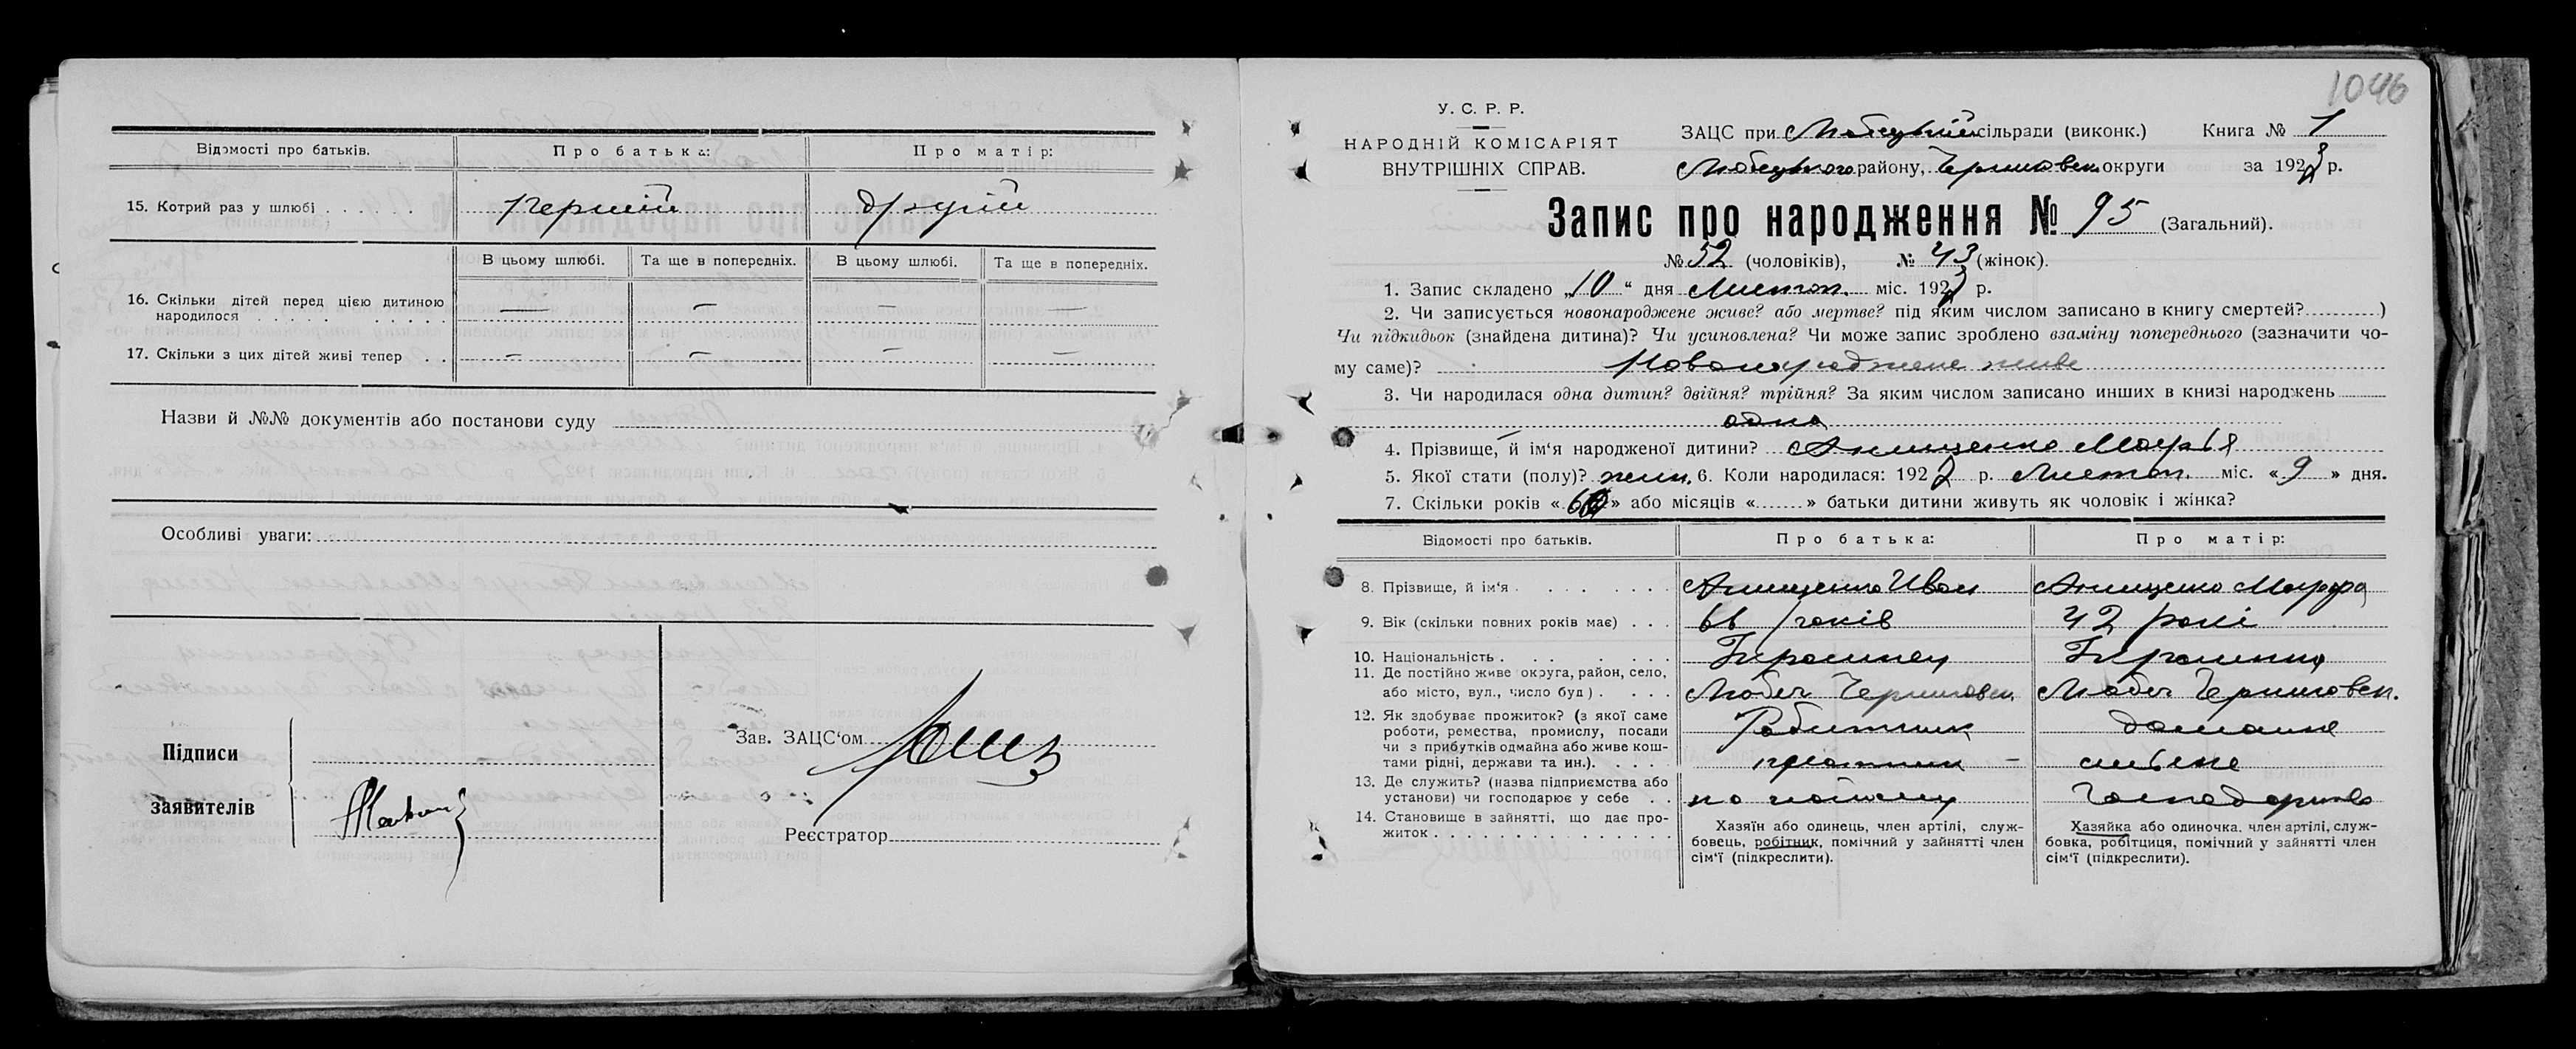 Відомості про батьків. Про батька: Про матір:
15. Котрий раз у шлюбі . . . . . . перший другий
В цьому шлюбі. Та ще в попередніх. В цьому шлюбі. Та ще в попередніх.
16. Скільки дітей перед цією дитиною
народилося . . . . . . . . . . — — — —
17. Скільки з цих дітей живі тепер . . — — — —
Назви й №№ документів або постанови суду
Особливі уваги:
Підписи
заявителів
Зав. ЗАЦС‘ом
Реєстратор
1046
У. С. Р. Р.
НАРОДНІЙ КОМІСАРІЯТ
ВНУТРІШНІХ СПРАВ.
ЗАЦС при Любецькій сільради (виконк.) Книга № 1
Любецького району, Чернігівськ. округи за 192 р.
Запис про народження № 95 (Загальний).
№ 52 (чоловіків), № 43 (жінок).
1. Запис складено „10“ дня Листоп. міс. 192 р.
2. Чи записується новонароджене живе? або мертве? під яким числом записано в книгу смертей? )
Чи підкидьок (знайдена дитина)? Чи усиновлена? Чи може запис зроблено взаміну попереднього (зазначити чо-
му саме)? Новонароджене живе
3. Чи народилася одна дитин? двійня? трійня? За яким числом записано инших в книзі народжень
одна
4. Прізвище, й ім‘я народженої дитини? Анищенко Марья
5. Якої стати (полу)? жин. 6. Коли народилася: 192 р. Листоп. міс. «9» дня.
7. Скільки років « » або місяців « » батьки дитини живуть як чоловік і жінка?
Відомості про батьків. Про батька: Про матір:
8. Прізвище, й ім‘я . . . . . . . Анищенко Иван Анищенко Марфа
9. Вік (скільки повних років має) . . . 66 років 42 рокі
10. Національність . . . . . . . Українец Українка
11. Де постійно живе округа, район, село,
або місто, вул., число буд.) . . . . Любеч Черниговск. Любеч Черниговск.
12. Як здобуває прожиток? (з якої саме
роботи, ремества, промислу, посади
чи з прибутків одмайна або живе кош-
тами рідні, держави та ин.). . . . Робитник домашнє
13. Де служить? (назва підприємства або
установи) чи господарює у себе . . по найому господарство
14. Становище в зайнятті, що дає про-
житок . . . . . . . . . . . . . .
Хазяїн або одинець, член артілі, служ-
бовець, робітник, помічний у зайнятті член
сім‘ї (підкреслити).
Хазяйка або одиночка, член артілі, служ-
бовка, робітциця, помічний у зайнятті член
сім‘ї (підкреслити).